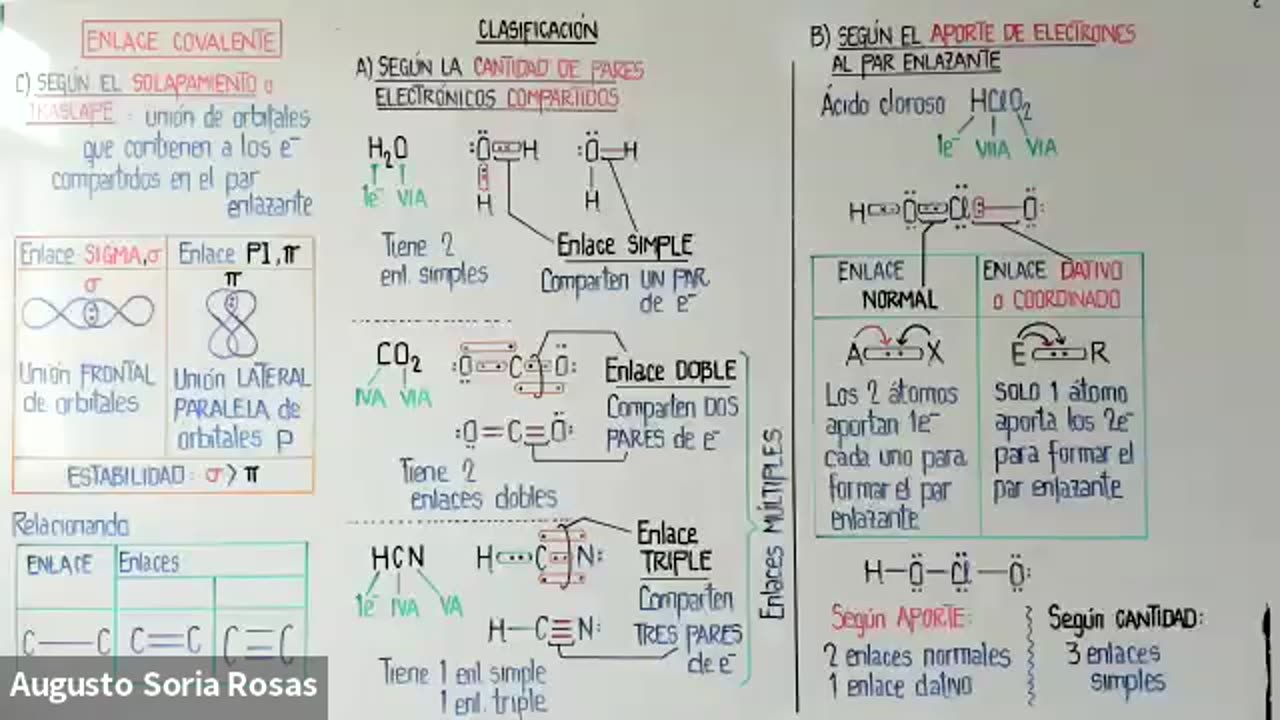 ENLACE COVALENTE
C) SEGÚN EL SOLAPAMIENTO o
TRASLAPE : unión de orbitales
que contienen a los e⁻
compartidos en el par
enlazante
Enlace SIGMA, σ
Enlace PI, π
σ
π
Unión FRONTAL
de orbitales
Unión LATERAL
PARALELA de
orbitales p
ESTABILIDAD: σ > π
Relacionando
ENLACE
Enlaces
C—C
C=C
C≡C
Augusto Soria Rosas
CLASIFICACIÓN
A) SEGÚN LA CANTIDAD DE PARES
ELECTRÓNICOS COMPARTIDOS
H₂O
1e⁻ VIA
:Ö H
H
:Ö—H
H
Tiene 2
enl. simples
Enlace SIMPLE
Comparten UN PAR
de e⁻
CO₂
IVA VIA
:O C O:
:O=C=O:
Tiene 2
enlaces dobles
Enlace DOBLE
Comparten DOS
PARES de e⁻
HCN
1e⁻ IVA VA
H C N:
H—C≡N:
Tiene 1 enl. simple
1 enl. triple
Enlace
TRIPLE
Comparten
TRES PARES
de e⁻
Enlaces MÚLTIPLES
B) SEGÚN EL APORTE DE ELECTRONES
AL PAR ENLAZANTE
Ácido cloroso HClO₂
1e⁻ VIIA VIA
H O Cl O:
ENLACE
NORMAL
ENLACE DATIVO
o COORDINADO
A X
E R
Los 2 átomos
aportan 1e⁻
cada uno para
formar el par
enlazante
SOLO 1 átomo
aporta los 2e⁻
para formar el
par enlazante
H—O—Cl—O:
Según APORTE:
2 enlaces normales
1 enlace dativo
Según CANTIDAD:
3 enlaces
simples